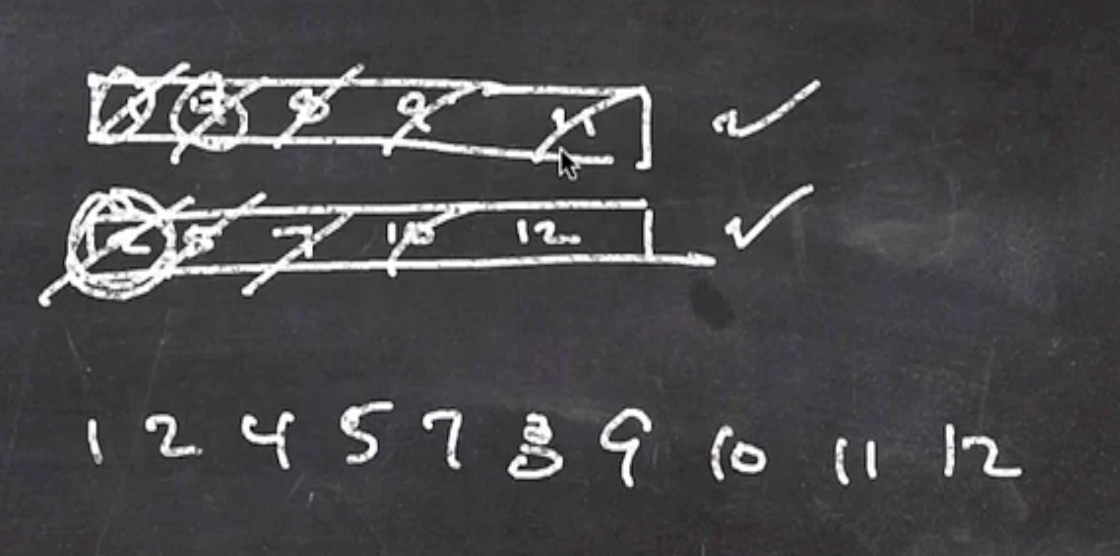 8 9 11
2 5 7 10 12
1 2 4 5 7 8 9 10 11 12